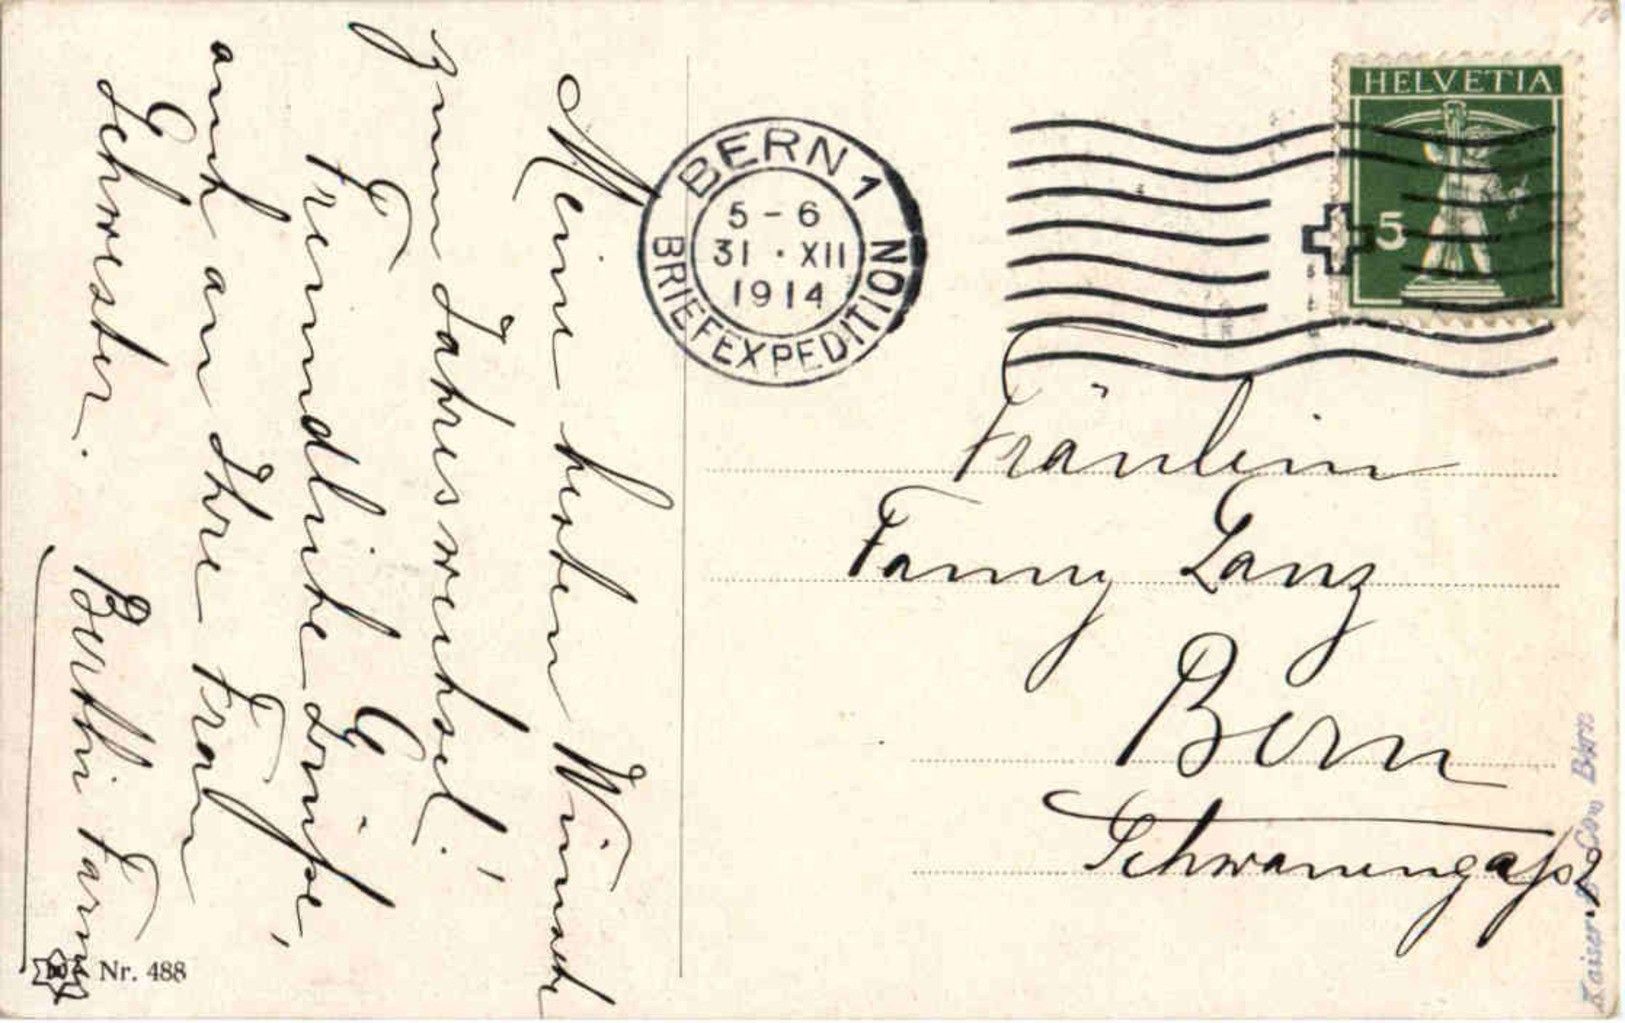 Meine besten Wünsche
zum Jahreswechsel!
Freundliche Grüsse,
auch an Ihre Frau
Schwester.
Berthi
BERN 1
5-6
31·XII
1914
BRIEFEXPEDITION
HELVETIA
5
Fräulein
Fanny Lanz
Bern
Schwanengasse
Nr. 488
Kaiser & Co., Bern